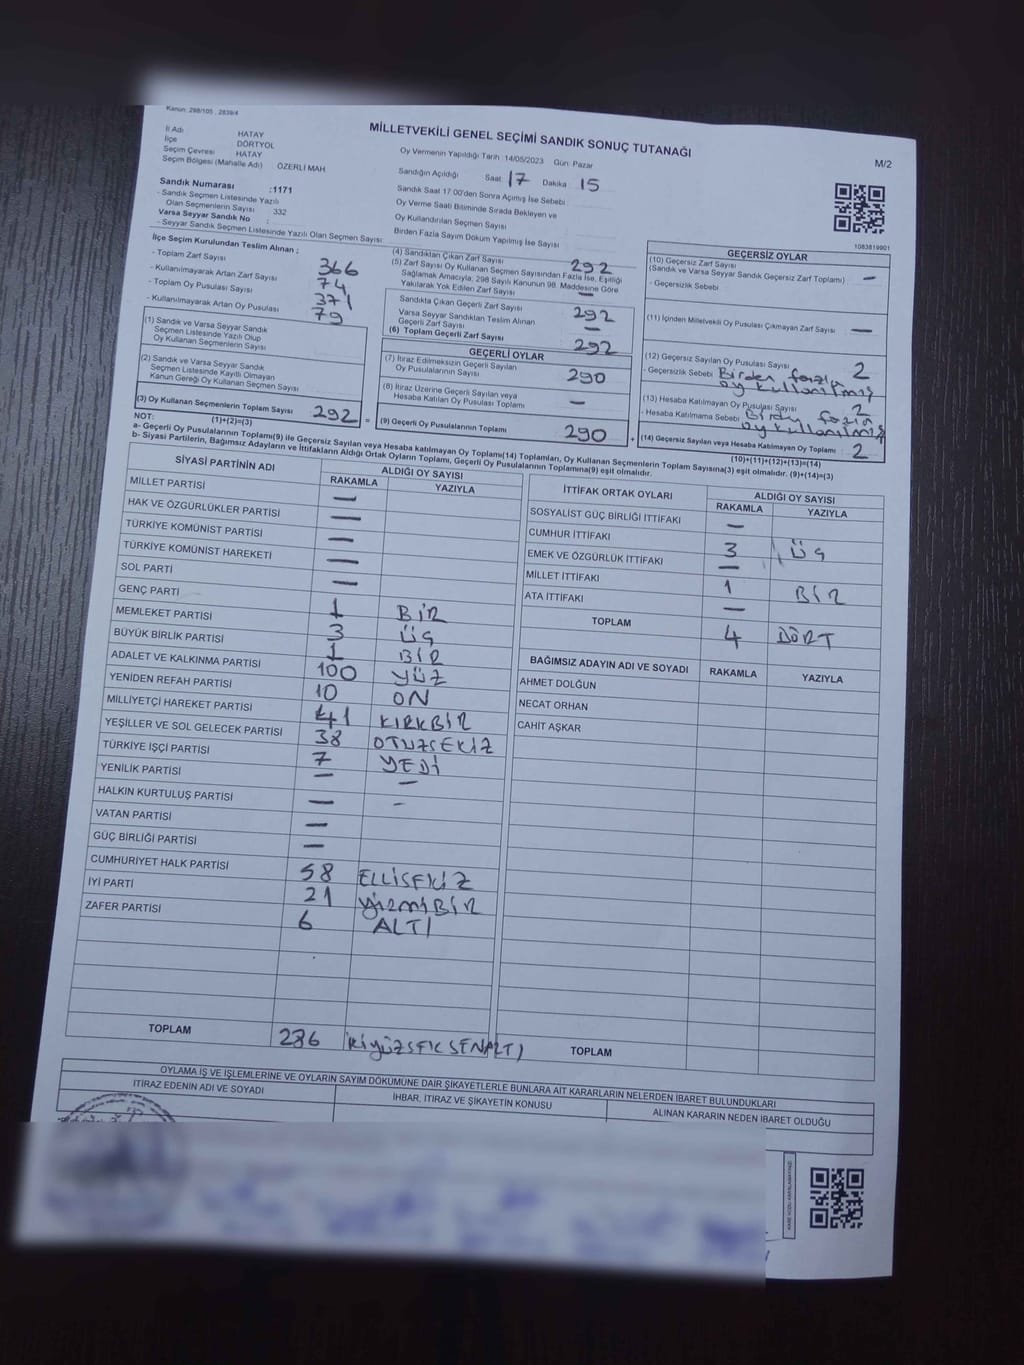 Kanun: 298/105 , 2839/4
MİLLETVEKİLİ GENEL SEÇİMİ SANDIK SONUÇ TUTANAĞI
M/2
İl Adı HATAY
İlçe DÖRTYOL
Seçim Çevresi HATAY
Seçim Bölgesi (Mahalle Adı) ÖZERLİ MAH
Oy Vermenin Yapıldığı Tarih 14/05/2023 Gün: Pazar
Sandığın Açıldığı Saat 17 Dakika 15
Sandık Saat 17 00'den Sonra Açımış İse Sebebi
Oy Verme Saati Bitiminde Sırada Bekleyen ve
Oy Kullandırılan Seçmen Sayısı
Birden Fazla Sayım Döküm Yapılmış İse Sayısı
Sandık Numarası :1171
- Sandık Seçmen Listesinde Yazılı
Olan Seçmenlerin Sayısı 332
Varsa Seyyar Sandık No :
- Seyyar Sandık Seçmen Listesinde Yazılı Olan Seçmen Sayısı
1083819901
İlçe Seçim Kurulundan Teslim Alınan :
- Toplam Zarf Sayısı 366
- Kullanılmayarak Artan Zarf Sayısı 74
- Toplam Oy Pusulası Sayısı 371
- Kullanılmayarak Artan Oy Pusulası 79
(1) Sandık ve Varsa Seyyar Sandık
Seçmen Listesinde Yazılı Olup
Oy Kullanan Seçmenlerin Sayısı
(2) Sandık ve Varsa Seyyar Sandık
Seçmen Listesinde Kayıtlı Olmayan
Kanun Gereği Oy Kullanan Seçmen Sayısı
(3) Oy Kullanan Seçmenlerin Toplam Sayısı 292 =
(4) Sandıktan Çıkan Zarf Sayısı 292
(5) Zarf Sayısı Oy Kullanan Seçmen Sayısından Fazla İse, Eşitliği
Sağlamak Amacıyla; 298 Sayılı Kanunun 98. Maddesine Göre
Yakılarak Yok Edilen Zarf Sayısı —
Sandıkta Çıkan Geçerli Zarf Sayısı 292
Varsa Seyyar Sandıktan Teslim Alınan
Geçerli Zarf Sayısı —
(6) Toplam Geçerli Zarf Sayısı 292
GEÇERLİ OYLAR
(7) İtiraz Edilmeksizin Geçerli Sayılan
Oy Pusulalarının Sayısı 290
(8) İtiraz Üzerine Geçerli Sayılan veya
Hesaba Katılan Oy Pusulası Toplamı —
(9) Geçerli Oy Pusulalarının Toplamı 290 +
GEÇERSİZ OYLAR
(10) Geçersiz Zarf Sayısı
(Sandık ve Varsa Seyyar Sandık Geçersiz Zarf Toplamı) —
- Geçersizlik Sebebi
(11) İçinden Milletvekili Oy Pusulası Çıkmayan Zarf Sayısı —
(12) Geçersiz Sayılan Oy Pusulası Sayısı 2
- Geçersizlik Sebebi Birden fazla
oy kullanılmış
(13) Hesaba Katılmayan Oy Pusulası Sayısı 2
- Hesaba Katılmama Sebebi Birden fazla
oy kullanılmış
(14) Geçersiz Sayılan veya Hesaba Katılmayan Oy Toplamı 2
NOT: (1)+(2)=(3)
(10)+(11)+(12)+(13)=(14)
a- Geçerli Oy Pusulalarının Toplamı(9) ile Geçersiz Sayılan veya Hesaba katılmayan Oy Toplamı(14) Toplamları, Oy Kullanan Seçmenlerin Toplam Sayısına(3) eşit olmalıdır. (9)+(14)=(3)
b- Siyasi Partilerin, Bağımsız Adayların ve İttifakların Aldığı Ortak Oyların Toplamı, Geçerli Oy Pusulalarının Toplamına(9) eşit olmalıdır.
SİYASİ PARTİNİN ADI ALDIĞI OY SAYISI
RAKAMLA YAZIYLA
MİLLET PARTİSİ —
HAK VE ÖZGÜRLÜKLER PARTİSİ —
TÜRKİYE KOMÜNİST PARTİSİ —
TÜRKİYE KOMÜNİST HAREKETİ —
SOL PARTİ —
GENÇ PARTİ 1 BİR
MEMLEKET PARTİSİ 3 ÜÇ
BÜYÜK BİRLİK PARTİSİ 1 BİR
ADALET VE KALKINMA PARTİSİ 100 YÜZ
YENİDEN REFAH PARTİSİ 10 ON
MİLLİYETÇİ HAREKET PARTİSİ 41 KIRKBİR
YEŞİLLER VE SOL GELECEK PARTİSİ 38 OTUZSEKİZ
TÜRKİYE İŞÇİ PARTİSİ 7 YEDİ
YENİLİK PARTİSİ — —
HALKIN KURTULUŞ PARTİSİ — —
VATAN PARTİSİ —
GÜÇ BİRLİĞİ PARTİSİ —
CUMHURİYET HALK PARTİSİ 58 ELLİSEKİZ
İYİ PARTİ 21 YİRMİBİR
ZAFER PARTİSİ 6 ALTI
TOPLAM 286 İKİYÜZSEKSENALTI
İTTİFAK ORTAK OYLARI ALDIĞI OY SAYISI
RAKAMLA YAZIYLA
SOSYALİST GÜÇ BİRLİĞİ İTTİFAKI —
CUMHUR İTTİFAKI 3 ÜÇ
EMEK VE ÖZGÜRLÜK İTTİFAKI —
MİLLET İTTİFAKI 1 BİR
ATA İTTİFAKI —
TOPLAM 4 DÖRT
BAĞIMSIZ ADAYIN ADI VE SOYADI RAKAMLA YAZIYLA
AHMET DOLĞUN
NECAT ORHAN
CAHİT AŞKAR
TOPLAM
OYLAMA İŞ VE İŞLEMLERİNE VE OYLARIN SAYIM DÖKÜMÜNE DAİR ŞİKAYETLERLE BUNLARA AİT KARARLARIN NELERDEN İBARET BULUNDUKLARI
İTİRAZ EDENİN ADI VE SOYADI İHBAR, İTİRAZ VE ŞİKAYETİN KONUSU ALINAN KARARIN NEDEN İBARET OLDUĞU